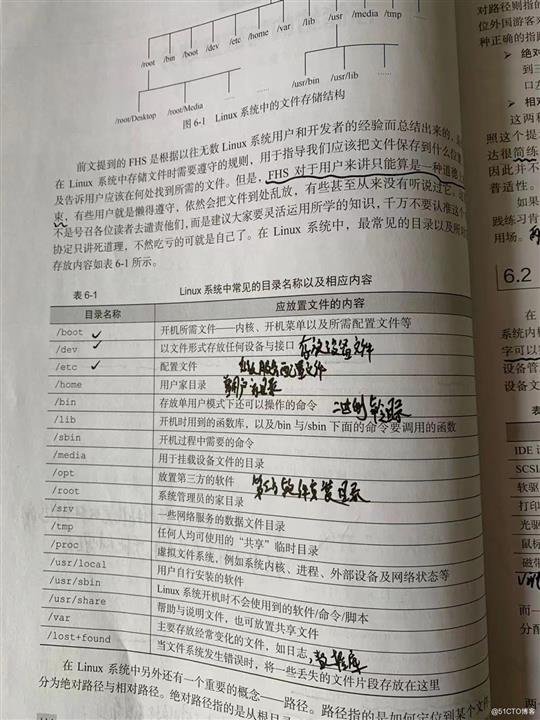 /root /bin /boot /dev /etc /home /var /lib /usr /media /tmp ……
/usr/bin /usr/lib ……
/root/Desktop /root/Media ……
图 6-1 Linux 系统中的文件存储结构
前文提到的 FHS 是根据以往无数 Linux 系统用户和开发者的经验而总结出来的,
在 Linux 系统中存储文件时需要遵守的规则，用于指导我们应该把文件保存到什么位置
及告诉用户应该在何处找到所需的文件。但是，FHS 对于用户来讲只能算是一种道德
束，有些用户就是懒得遵守，依然会把文件到处乱放，有些甚至从来没有听说过它。
不是号召各位读者去谴责他们，而是建议大家要灵活运用所学的知识，千万不要认准这个
协定只讲死道理，不然吃亏的可就是自己了。在 Linux 系统中，最常见的目录以及所对
存放内容如表 6-1 所示。
表 6-1 Linux 系统中常见的目录名称以及相应内容
目录名称 应放置文件的内容
/boot 开机所需文件——内核、开机菜单以及所需配置文件等
/dev 以文件形式存放任何设备与接口 存放设备文件
/etc 配置文件 服务配置文件
/home 用户家目录
/bin 存放单用户模式下还可以操作的命令
/lib 开机时用到的函数库，以及/bin 与/sbin 下面的命令要调用的函数
/sbin 开机过程中需要的命令
/media 用于挂载设备文件的目录
/opt 放置第三方的软件 第三方软件安装目录
/root 系统管理员的家目录
/srv 一些网络服务的数据文件目录
/tmp 任何人均可使用的“共享”临时目录
/proc 虚拟文件系统，例如系统内核、进程、外部设备及网络状态等
/usr/local 用户自行安装的软件
/usr/sbin Linux 系统开机时不会使用到的软件/命令/脚本
/usr/share 帮助与说明文件，也可放置共享文件
/var 主要存放经常变化的文件，如日志 数据库
/lost+found 当文件系统发生错误时，将一些丢失的文件片段存放在这里
在 Linux 系统中另外还有一个重要的概念——路径。路径指的是如何定位到某个文件
分为绝对路径与相对路径。绝对路径指的是从根目录
对路径则指的
位外国游客
种正确的指路
绝对
到三
口左
相对
这两种
照这个提示
达很简练
因此并不
普适性。
如果
践练习肯
用场。
6.2
在
系统内核
字可以
设备管
设备文
IDE 设
SCSI
软驱
打印
光驱
鼠标
磁带
而一
分配
@51CTO博客